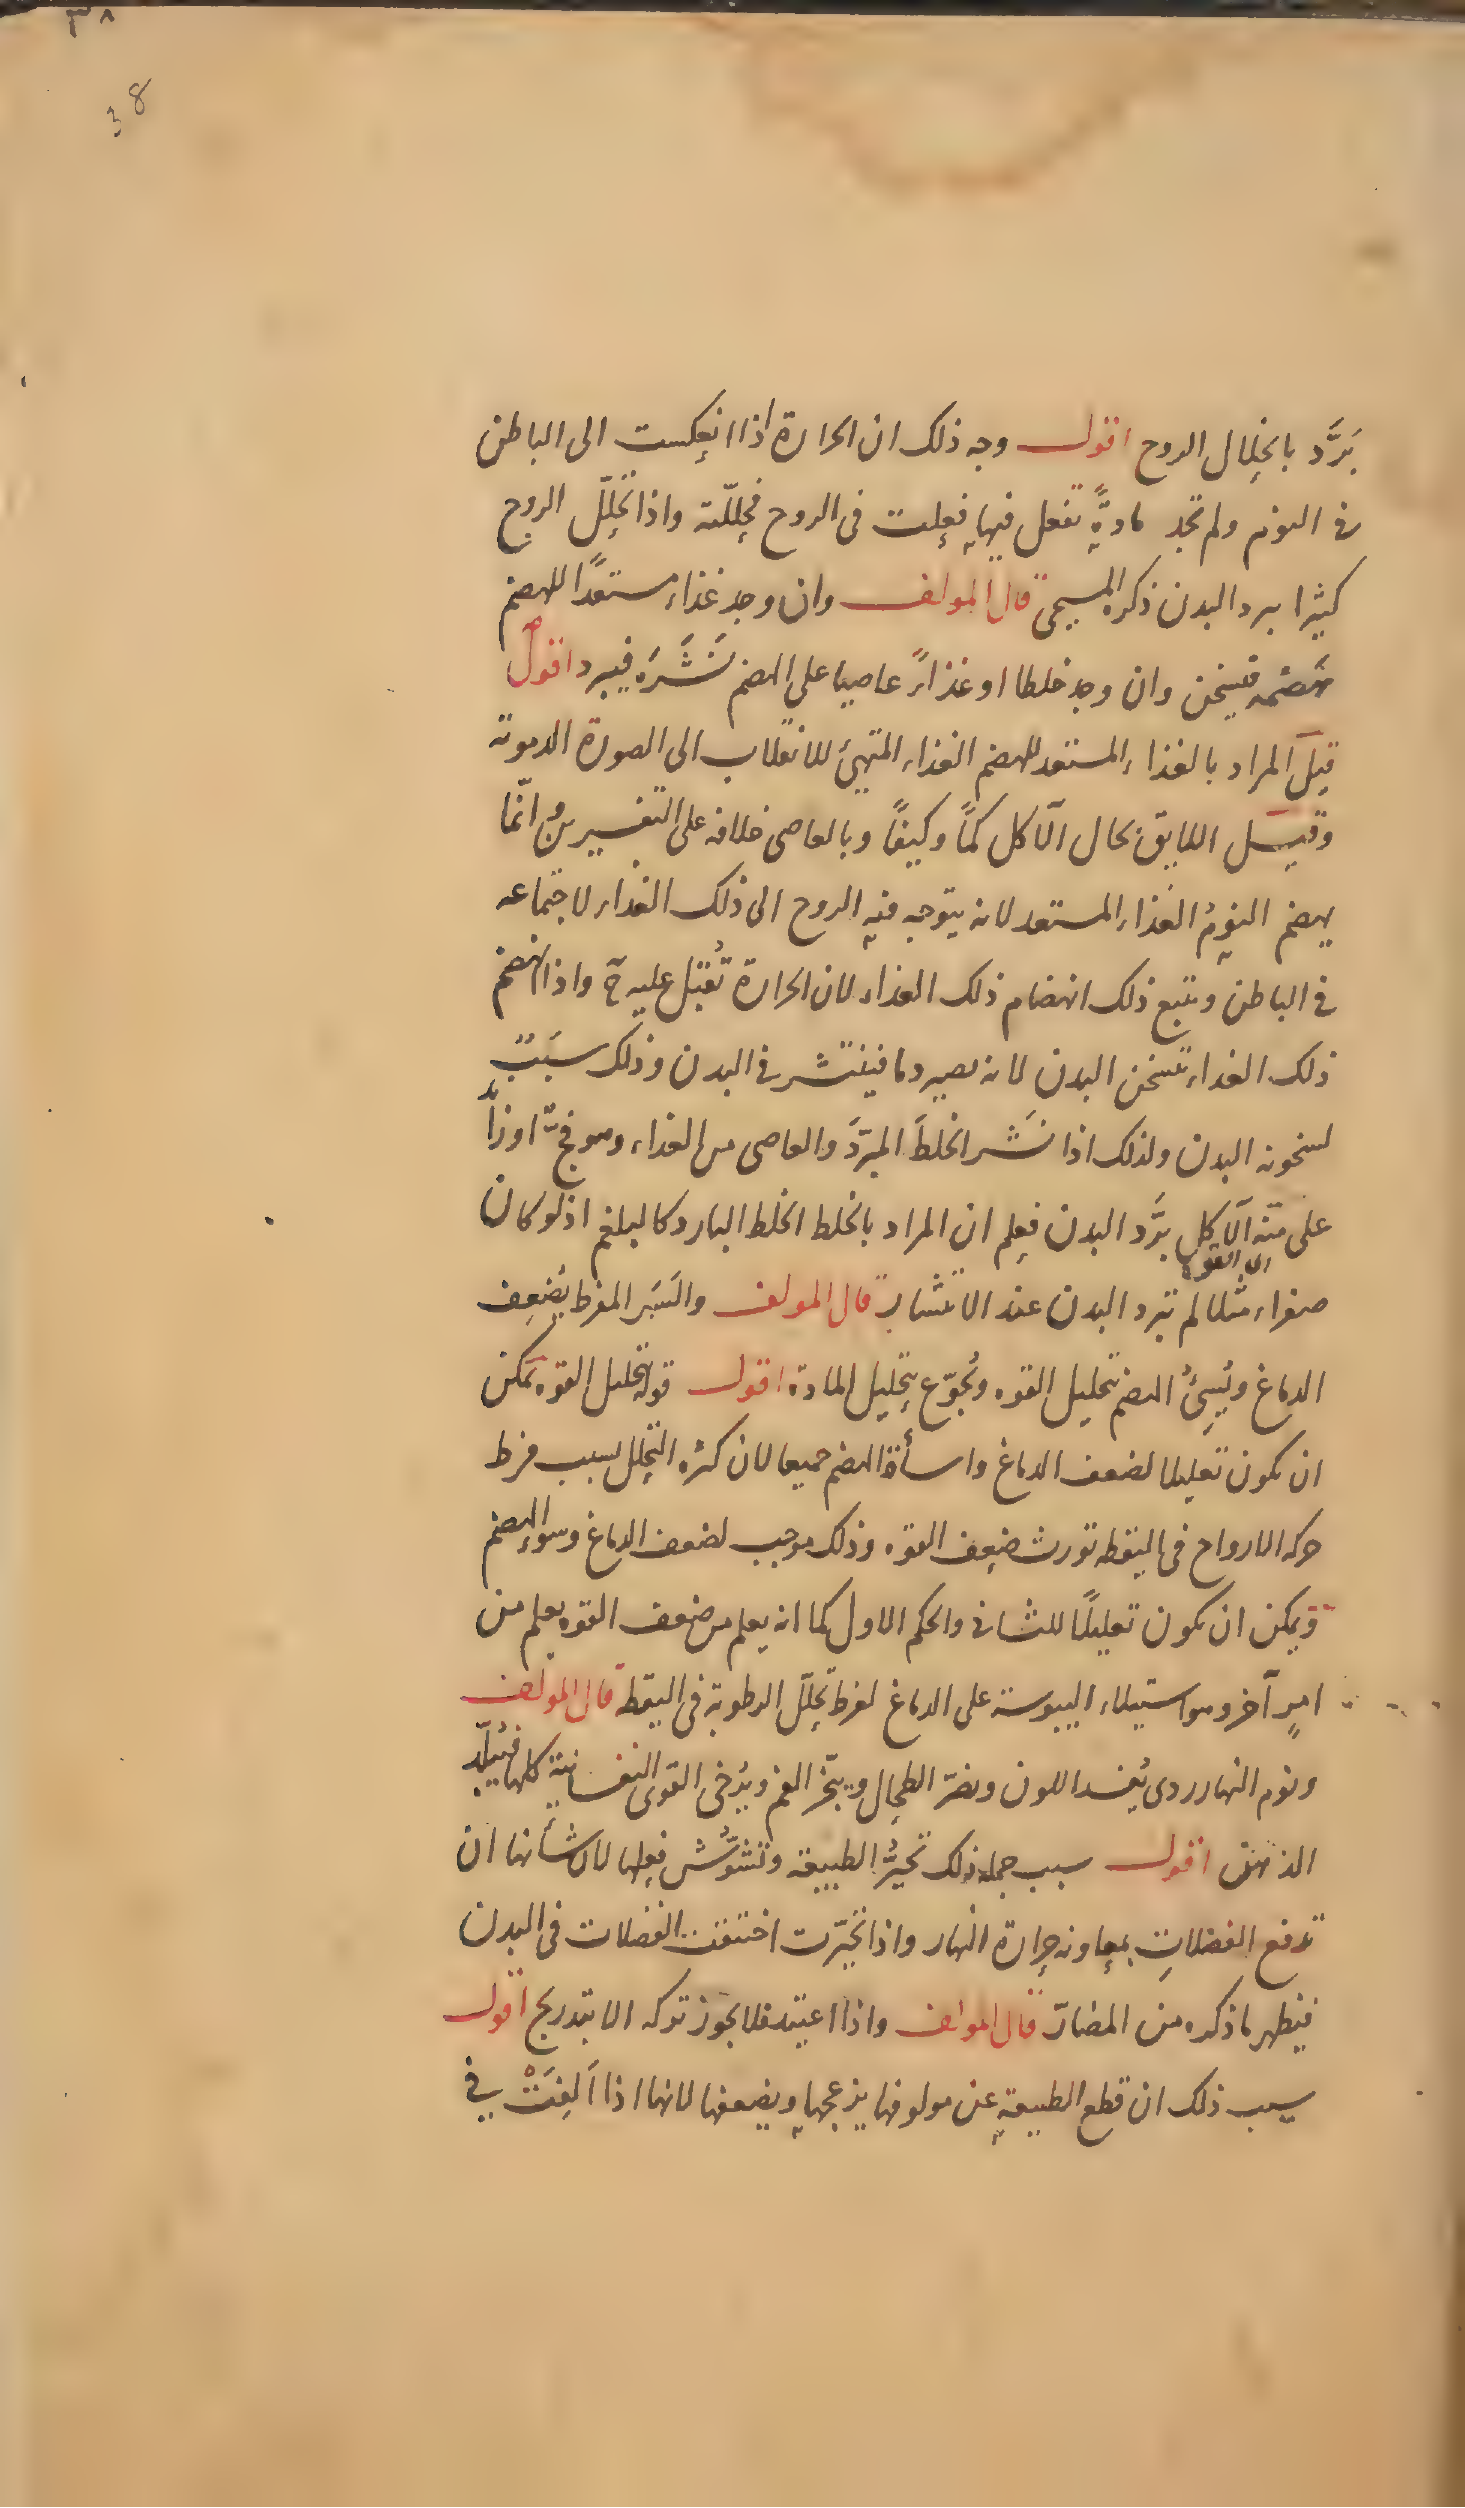 ٣٨
38
بَرَّد بانحلال الروح اقول وجه ذلك ان الحرارة اذا انعكست الى الباطن
فى النوم ولم تجد مادةً تفعل فيها فعلت فى الروح فحللته واذا تحلّل الروح
كثيرا برد البدن ذكره المسيحى قال المولف وان وجد غذاء مستعدًّا للهضم
هَضَمه فيسخن وان وجد خلطا او غذاءً عاصيا على الهضم نَشَرَه فيبرد اقول
قيل المراد بالغذاء المستعد للهضم الغذاء المتهيئ للانقلاب الى الصورة الدموية
وقيل اللايق بحال الآكل كمًّا وكيفًا وبالعاصى خلافه على التفسيرين وانّما
يهضم النومُ الغذاء المستعد لانه يتوجه فيه الروح الى ذلك الغذاء لاجتماعه
فى الباطن ويتبع ذلك انهضام ذلك الغذاء لان الحرارة تُقبل عليه ح واذا انهضم
ذلك الغذاء تسخن البدن لانه يصير دما فينتشر فى البدن وذلك سبب
لسخونة البدن ولذلك اذا نَشر الخلطَ المبرّدَ والعاصى من الغذاء وهو فجّ او زائد
على منّة الآكل برَّد البدن فعلم ان المراد بالخلط الخلط البارد كالبلغم اذ لو كان
صفراء مثلا لم يبرد البدن عند الانتشار قال المولف والسَهَر المفرط يُضعف
الدماغ ويُسِئُ الهضم بتحليل القوه ويُجوّع بتحليل المادة اقول قوله بتحليل القوه يمكن
ان يكون تعليلا لضعف الدماغ واساءة الهضم جميعا لان كثرة التحلل بسبب فرط
حركه الارواح فى اليقظه تورث ضعف القوه وذلك موجب لضعف الدماغ وسوء الهضم
ويمكن ان يكون تعليلًا للثانى والحكم الاول كما انه يعلم من ضعف القوه يعلم من
امرٍ آخر وهو استيلاء اليبوسة على الدماغ لفرط تحلّل الرطوبة فى اليقظه قال المولف
ونوم النهار ردى يُفسد اللون ويضرّ الطحال ويبخّر الفم ويُرخى القوى النفسانية كلها فيُبلّد
الذهن اقول سبب جملة ذلك تحيُّر الطبيعة وتشوُّش فعلها لان شأنها ان
تدفع الفضلاتِ بمعاونة حرارة النهار واذا تحيّرت اختنقت الفضلات فى البدن
فيظهر ما ذكره من المضارّ قال المولف واذا اعتيد فلا يجوز تركه الا بتدريج اقول
سبب ذلك ان قطع الطبيعة عن مولوفها يزعجها ويضعفها لانها اذا اَلِفَتْه فى